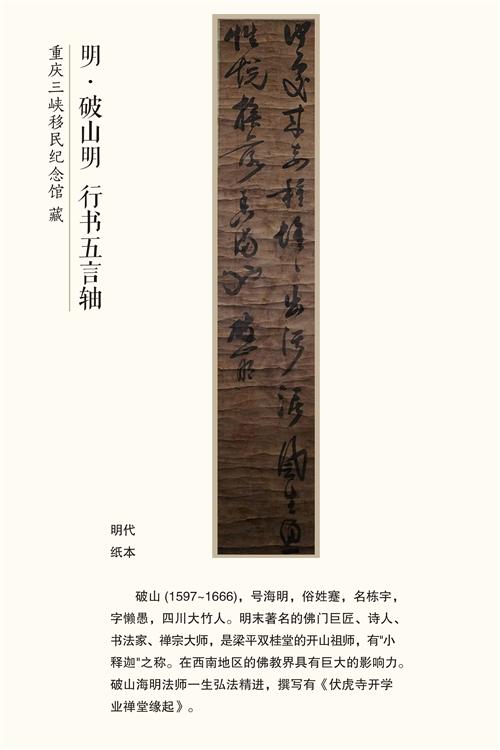 明·破山明 行书五言轴
重庆三峡移民纪念馆 藏
出污泥
风生
破山明
明代
纸本
破山 (1597~1666)，号海明，俗姓蹇，名栋宇，
字懒愚，四川大竹人。明末著名的佛门巨匠、诗人、
书法家、禅宗大师，是梁平双桂堂的开山祖师，有"小
释迦"之称。在西南地区的佛教界具有巨大的影响力。
破山海明法师一生弘法精进，撰写有《伏虎寺开学
业禅堂缘起》。